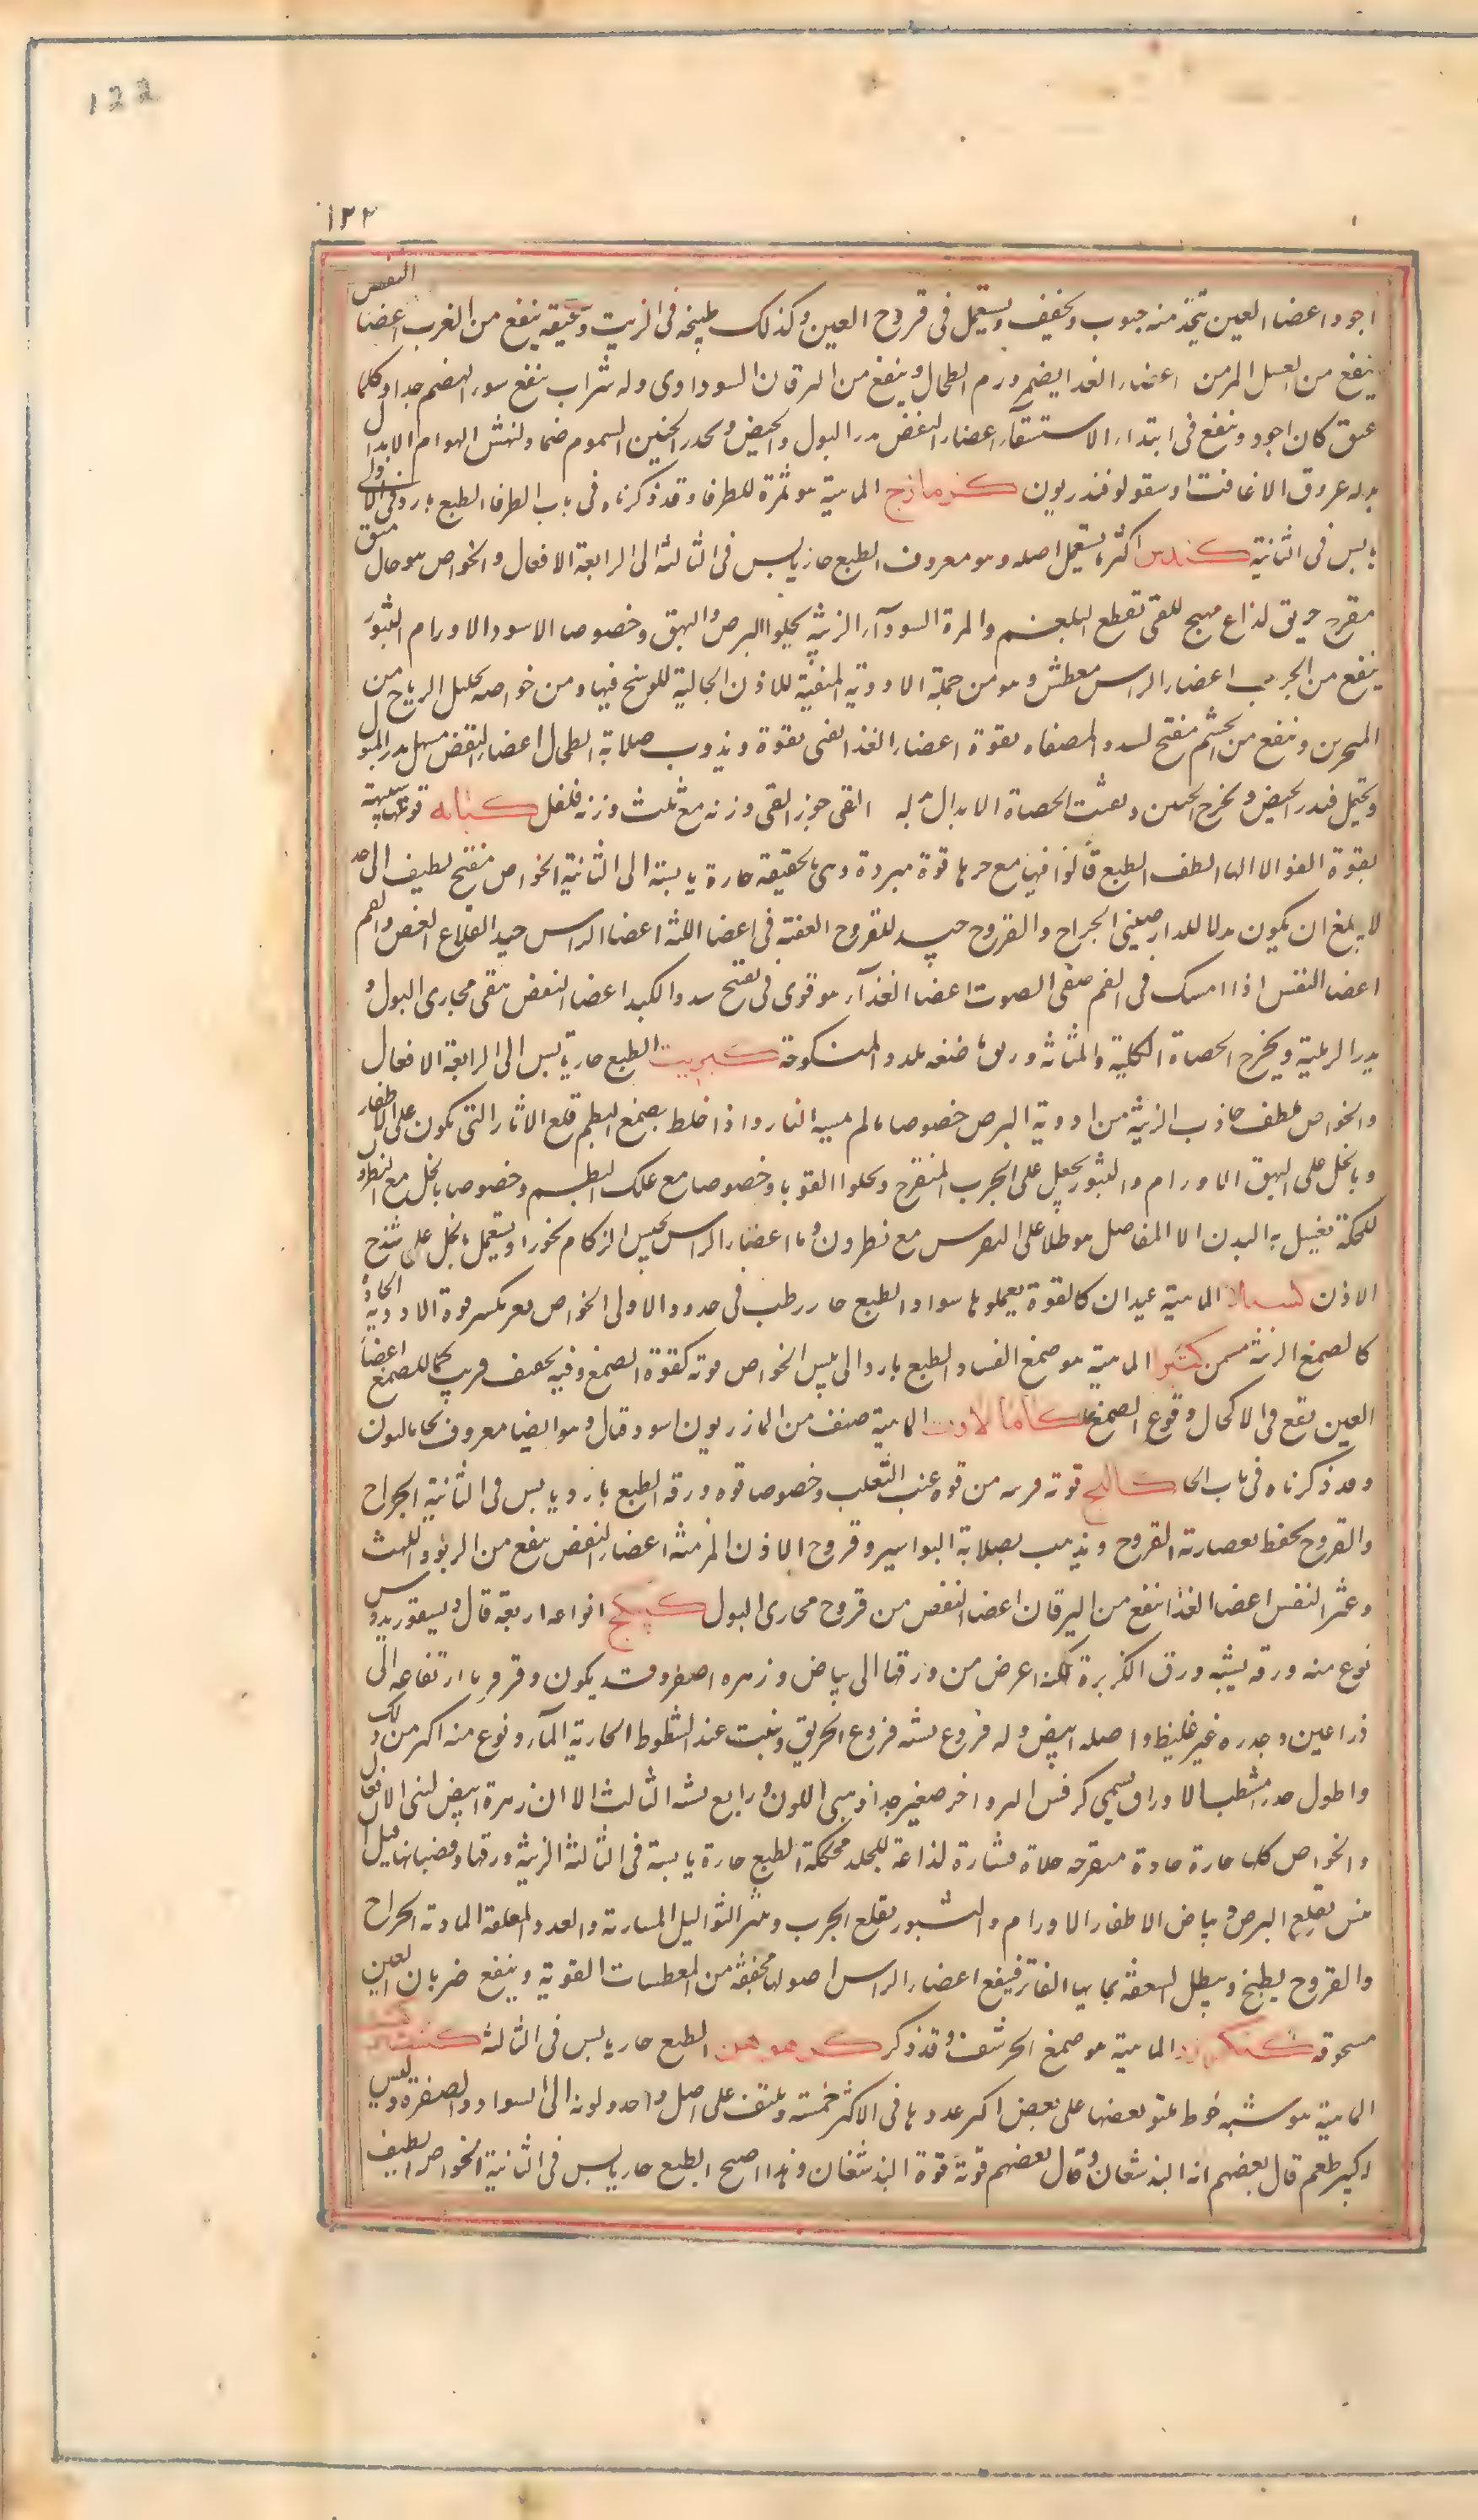 122
١٢٢
اجود اعضا العين يتخذ منه حبوب ويخفف ويستعمل فى قروح العين وكذلك طبيخه فى الزيت وعتيقه ينفع من الغرب اعضا النفض
ينفع من العسل المزمن اعضاء الغذا يضمر ورم الطحال وينفع من اليرقان السوداوى وله شراب ينفع سوء الهضم جدا وكلما
عتق كان اجود وينفع فى ابتداء الاستسقآء اعضاء النفض يدر البول والحيض ويحدر الجنين السموم ضماد لنهش الهوام الابدال
بدله عروق الاغافت او سقولوفندريون كزمازج الماهية هو ثمرة للطرفا وقد ذكرناه فى باب الطرفا الطبع بارد فى الاولى
يابس فى الثانية كندس اكثر ما يستعمل اصله وهو معروف الطبع حار يابس فى الثالثة الى الرابعة الافعال والخواص هو جال منق
مقرح حريق لذاع مهيج للقى تقطع البلغم والمرة السودآء الزينة يجلوا البرص والبهق وخصوصا الاسود الاورام البثور
ينفع من الجرب اعضاء الراس معطش وهو من جملة الادوية المنقية للاذن الجالية للوسخ فيها ومن خواصه تحليل الرياح من
المنخرين وينفع من الخشم مفتح لسدد المصفاه بقوة اعضاء الغذا لقى بقوة ويذوب صلابة الطحال اعضاء النفض مسهل مدر للبول
ويحتمل فيدر الحيض ويخرج الجنين ويفتت الحصاة الابدال بدله القى جوز القى وزنه مع ثلث وزنه فلفل كبابه قوتها شبيهة
بقوة الفوالا انها الطف الطبع قالوا فيها مع حرها قوة مبردة وهى بالحقيقة حارة يابسة الى الثانية الخواص مفتح لطيف الى حد
لا يبلغ ان يكون بدلا للدارصينى الجراح والقروح جيد للقروح العفنة فى اعضا اللثه اعضا الراس جيد القلاع العفن والفم
اعضا النفس اذا امسك فى الفم صفى الصوت اعضا الغذآء هو قوى فى تفتح سدد الكبد اعضا النفض ينقى مجارى البول و
يدر الرملية ويخرج الحصاة الكلية والمثانة وريق ماضغه يلذذ المنكوحة كبريت الطبع حار يابس الى الرابعة الافعال
والخواص ملطف جاذب الزينة من ادوية البرص خصوصا ما لم يمسه النار واذا خلط بصمغ البطم قلع الاثار التى تكون على الاظفار
وبالخل على البهق الاورام والبثور يجعل على الجرب المتقرح ويجلوا القوبا وخصوصا مع علك البطم وخصوصا بالخل مع النطرون
للحكة يغسل به البدن الا المفاصل هو طلا على النقرس مع نطرون وما اعضاء الراس يحبس الزكام بخورا ويستعمل بالخل على شدخ
الاذن كسيلا الماهية عيدان كالفوة يعملوها سواد والطبع حار رطب فى حدود الاولى الخواص مغر يكسر قوة الادوية الحادة
كالصمغ الزينة مسمن كثيرا الماهية هو صمغ القتاد الطبع بارد الى يبس الخواص قوته كقوة الصمغ وفيه تجفيف قريب كما للصمغ اعضا
العين يقع فى الاكحال وقوع الصمغ كامالاون الماهية صنف من المازريون اسود قتال وهو ايضا معروف بخامالاون
وقد ذكرناه فى باب الخا كاكنج قوته قريبه من قوة عنب الثعلب وخصوصا قوه ورقه الطبع بارد يابس فى الثانية الجراح
والقروح يحفظ بعصارته القروح ويذهب بصلابة البواسير وقروح الاذن المزمنة اعضاء النفض ينفع من الربو واللهث
وعسر النفس اعضا الغذا ينفع من اليرقان اعضا النفض من قروح مجارى البول كبيكج انواعه اربعة قال ديسقوريدوس
نوع منه ورقه يشبه ورق الكزبرة لكنه اعرض من ورقها الى بياض وزهره اصفر وقد يكون وفرفريا ارتفاعه الى
ذراعين وجدره غير غليظ واصله ابيض وله فروع يشبه فروع الخريق وينبت عند الشطوط الجارية المآء ونوع منه اكبر من ذلك
واطول جدر مشطب الاوراق يسمى كرفس البر واخر صغير جدا ذهبى اللون ورابع يشبه الثالث الا ان زهرة ابيض لبنى الافعال
والخواص كلها حارة حادة مقرحه جلاة قشارة لذاعة للجلد محكمة الطبع حارة يابسة فى الثالثة الزينة ورقها وقضبانها قبل ان
ييبس تقلع البرص وبياض الاظفار الاورام والبثور تقلع الجرب وينثر الثواليل المسمارية والغدد المعلقة المادته الجراح
والقروح يطبخ ويبطل السعفة بمايها الفاتر فينفع اعضاء الراس اصولها مجففة من المعطسات القوية وينفع ضربان العين
مسحوقه كنكرزد الماهية هو صمغ الحرشف وقد ذكر كرموهن الطبع حار يابس فى الثالثة
الماهية هو شبه خوط ملتو بعضها على بعض اكبر عددها فى الاكثر خمسة ويلتف على اصل واحد ولونه الى السواد والصفرة وليس
كبير طعم قال بعضهم انه البذشغان وقال بعضهم قوته قوة البذشغان وهذا اصح الطبع حار يابس فى الثانية الخواص لطيف